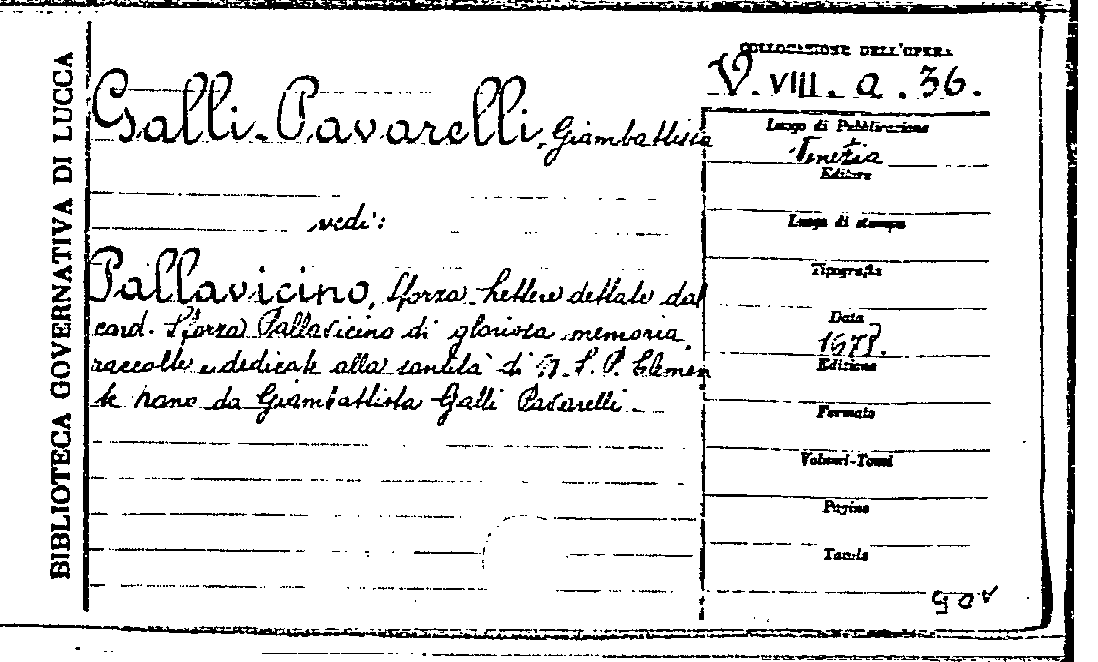 BIBLIOTECA GOVERNATIVA DI LUCCA
COLLOCAZIONE DELL'OPERA
V. VIII. a. 36.
Galli-Pavarelli, Giambattista
vedi:
Pallavicino, Sforza Lettere dettate dal
card. Sforza Pallavicino di gloriosa memoria,
raccolte e dedicate alla santità di N. S. P. Clemen
te nono da Giambattista Galli Pavarelli.
Luogo di Pubblicazione
Venezia
Editore
Luogo di stampa
Tipografia
Data
Edizione
Formato
Volumi-Tomi
Pagine
Tavole